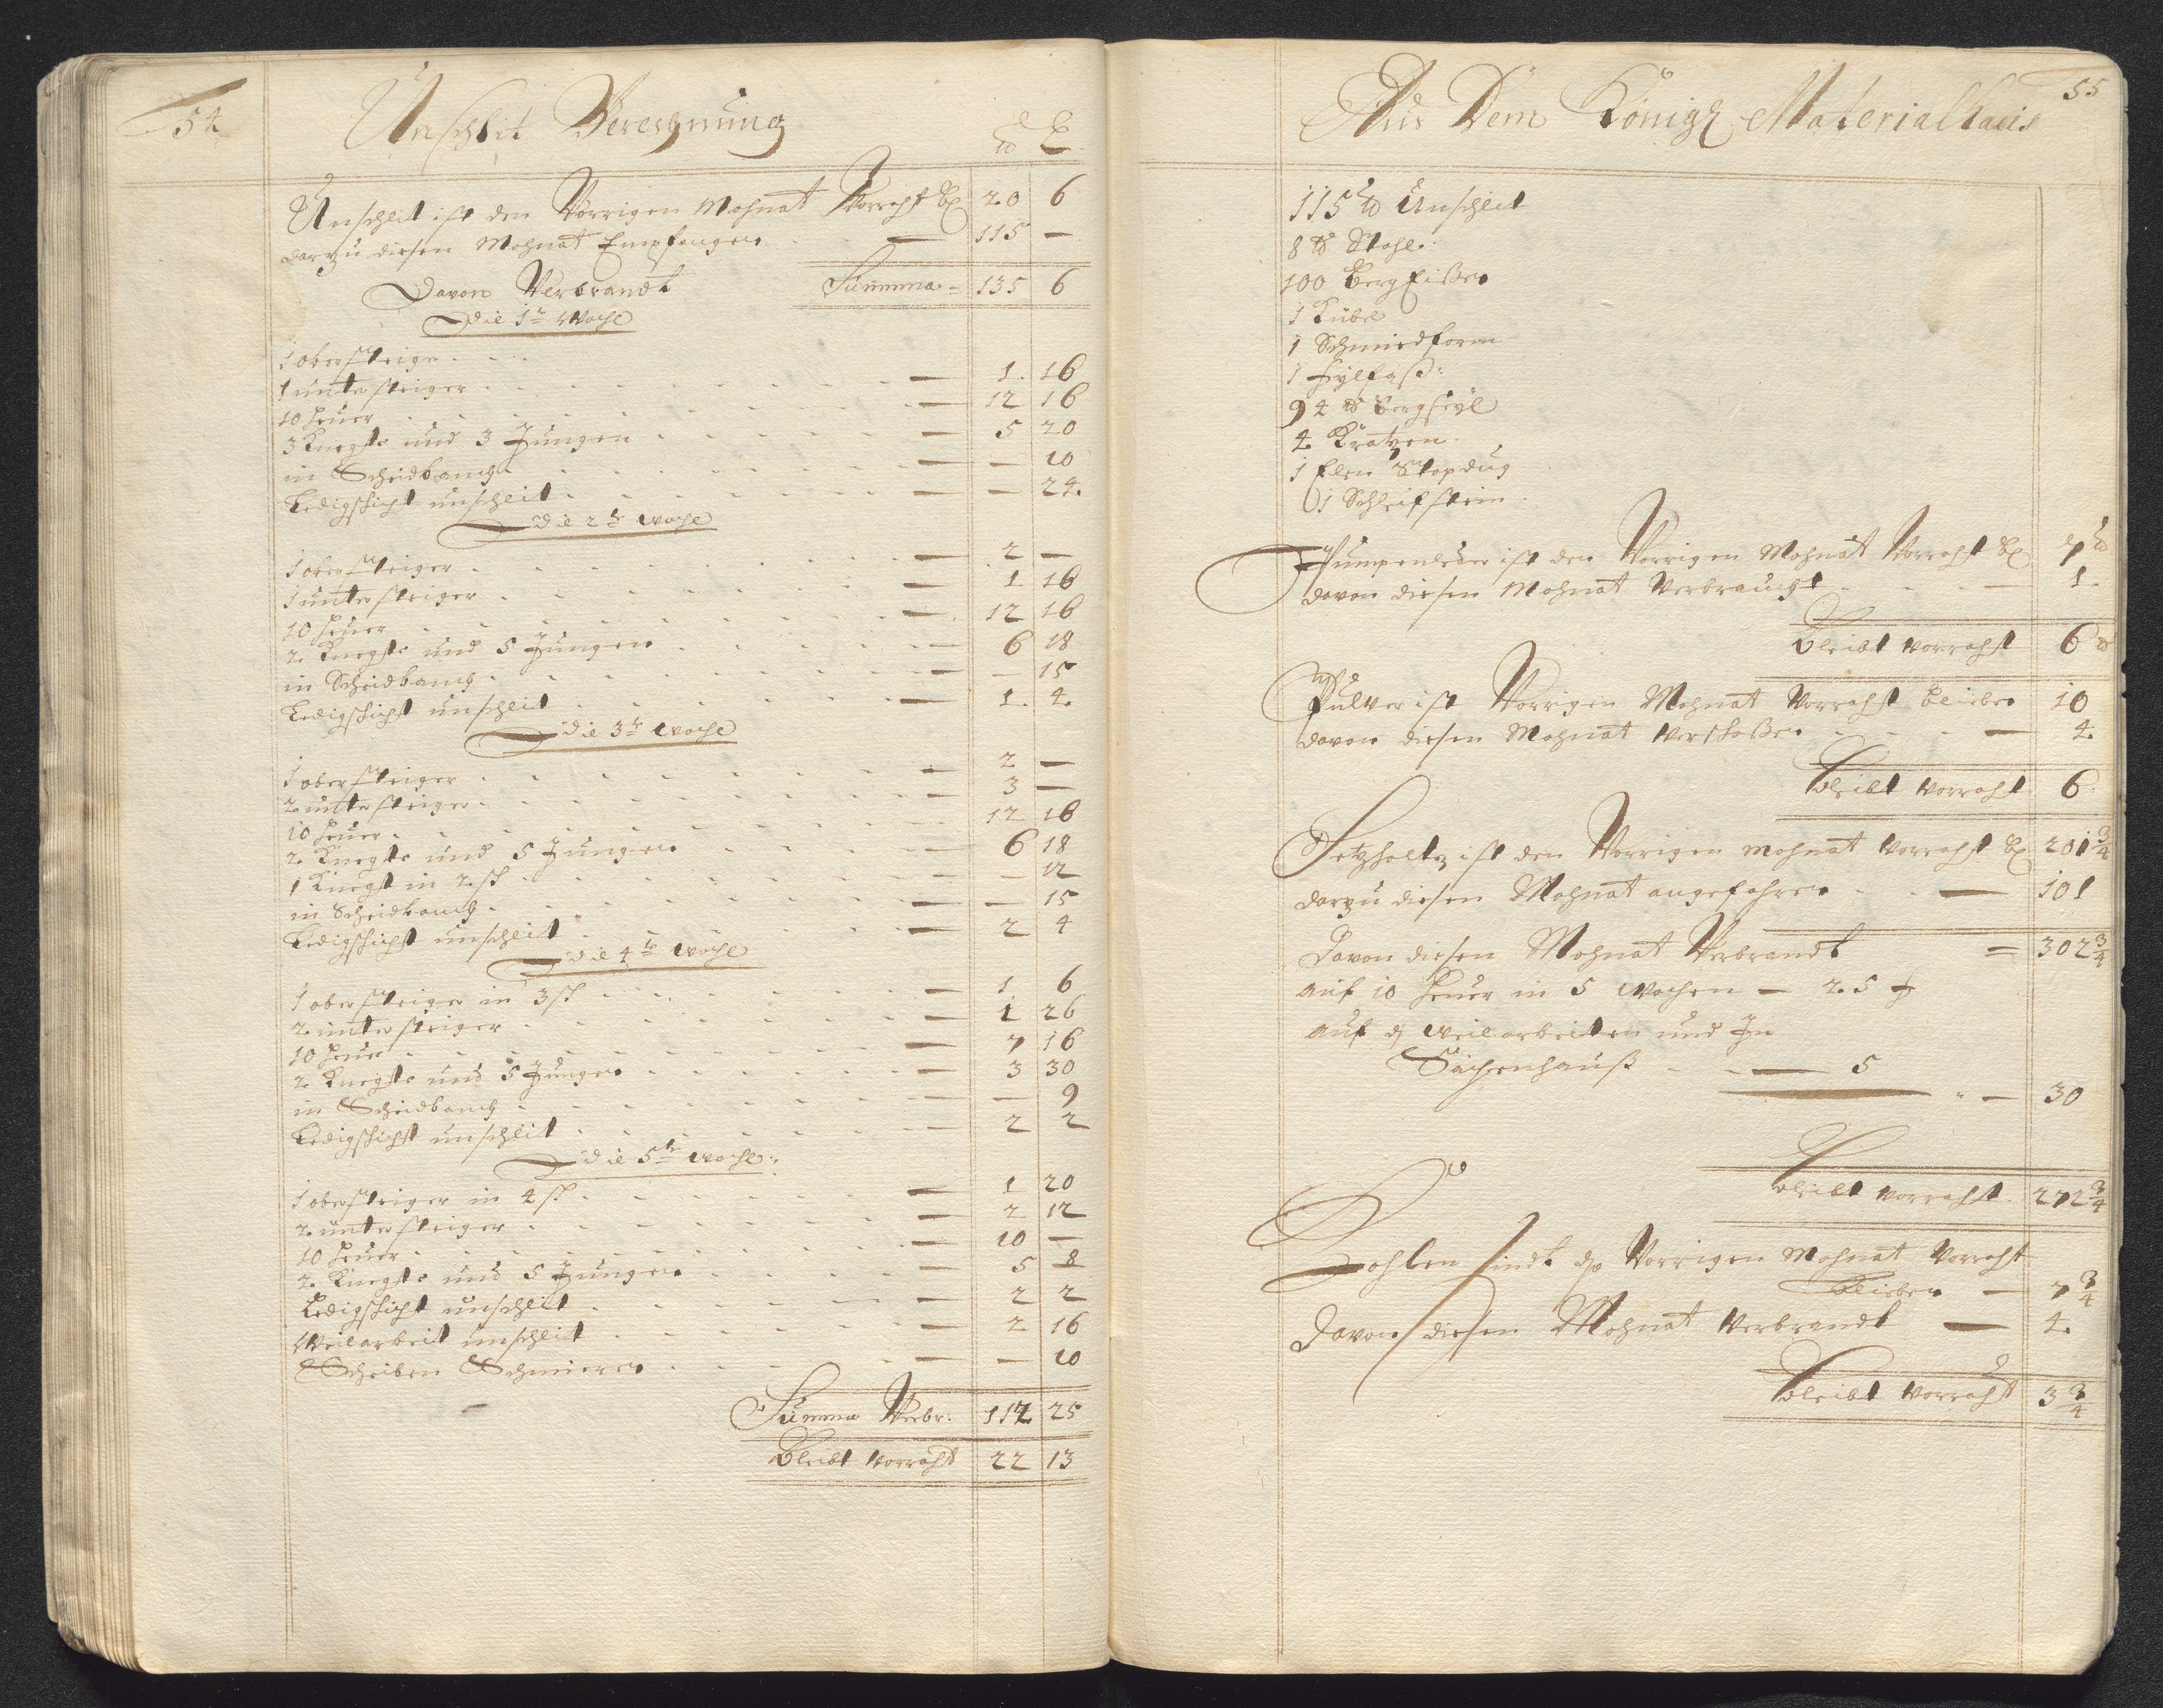 54
Unschlit Berechnung
℔ L
Unschlit ist den Vorrigen Mohnat Vorraht bl 20 6
darzu diesen Mohnat Empfangen 115 —
Davon Verbrandt Summa 135 6
Die 1te Woche
1 obersteiger
1 untersteiger 1 16
10 heuer 12 16
3 Knegte und 3 Jungen 5 20
in Scheidbanck — 10
Ledigschicht unschleit — 24
die 2te woche
1 obersteiger 2 —
1 untersteiger 1 16
10 heuer 12 16
2 Knegte und 5 Jungen 6 18
in Scheidbanck — 15
Ledigschicht unschleit 1 4
die 3te woche
1 obersteiger 2 —
2 untersteiger 3 —
10 heuer 12 16
2 Knegte und 5 Jungen 6 18
1 Knegt in 2 sch — 12
in Scheidbanck — 15
Ledigschicht unschleit 2 4
die 4te woche
1 obersteiger in 3 sch 1 6
2 untersteiger 1 26
10 heuer 7 16
2 Knegte und 5 Jungen 3 30
in Scheidbanck — 9
Ledigschicht unschleit 2 2
die 5te woche
1 obersteiger in 4 sch 1 20
2 untersteiger 2 12
10 heuer 10 —
2 Knegte und 5 Jungen 5 8
Ledigschicht unschleit 2 2
Weilarbeit unschleit 2 16
Scheiben Schmieren — 10
Summa Verbr: 112 25
Bleibt vorraht 22 13
55
Aus Dem Königl Materialhaus
115 ℔ Unschleit
8 ℔ Stahl
100 Bergeißen
1 Kübel
1 Schmiedform
1 Fylfaß:
94 ℔ Bergseyl
4 Kratzen
1 Elen Stopdug
1 Schleifstein
Pumpenleder ist den Vorrigen Mohnat Vorraht bl 7 ℔
davon diesen Mohnat Verbraucht 1
bleibt vorraht 6 ℔
Pulver ist Vorrigen Mohnat Vorraht blieben 10
davon diesen Mohnat verschoßen 4
bleibt vorraht 6
Setzholtz ist den Vorrigen mohnat vorraht bl 201 3/4
darzu diesen Mohnat angefahren 101
Davon diesen Mohnat Verbrandt = 302 3/4
auf 10 heuer in 5 wochen — 25
auf d weilarbeiten und In
Sachsenhauß 5
30
bleibt vorraht 272 3/4
Kohlen sindt Vorrigen Mohnat Vorraht
blieben — 7 3/4
Davon diesen Mohnat verbrandt — 4
bleibt vorraht 3 3/4